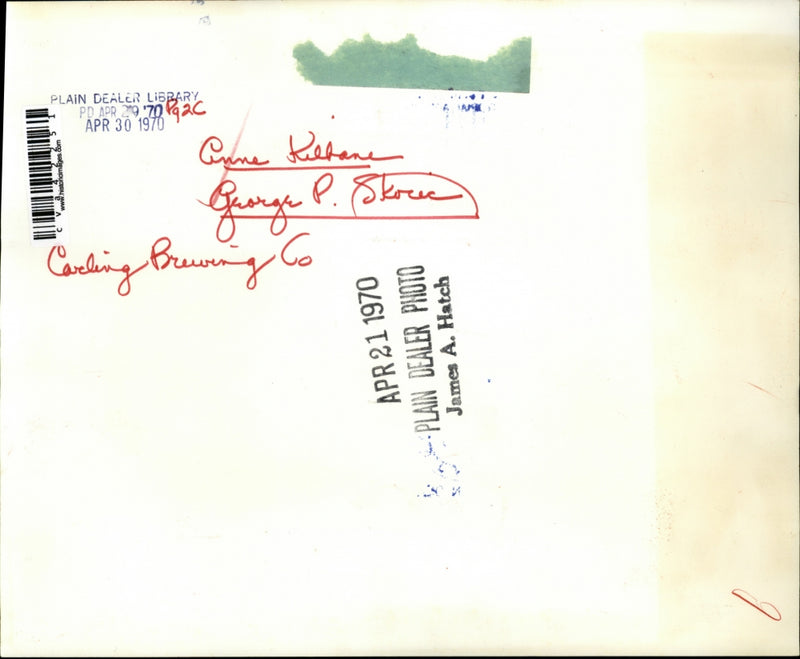 PLAIN DEALER LIBRARY
PD APR 29 '70 Pg2C
APR 30 1970
Anne Kilbane
George P. Skoric
Carling Brewing Co
cva42251
www.historicimages.com
APR 21 1970
PLAIN DEALER PHOTO
James A. Hatch
B